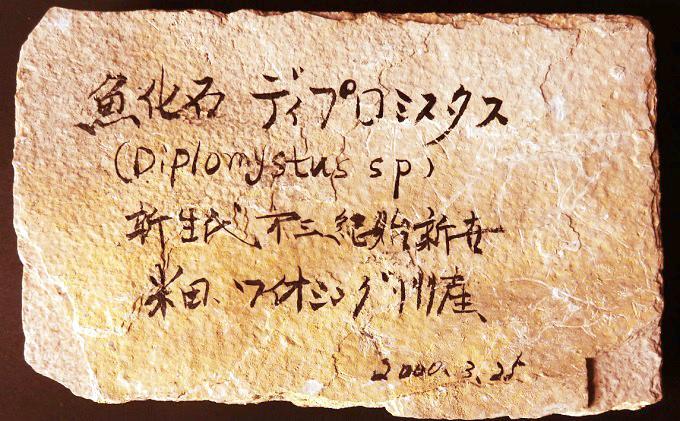 魚化石 ディプロミスタス
(Diplomystus sp)
新生代 不三紀始新世
米国、ワイオミング州産
2000.3.25